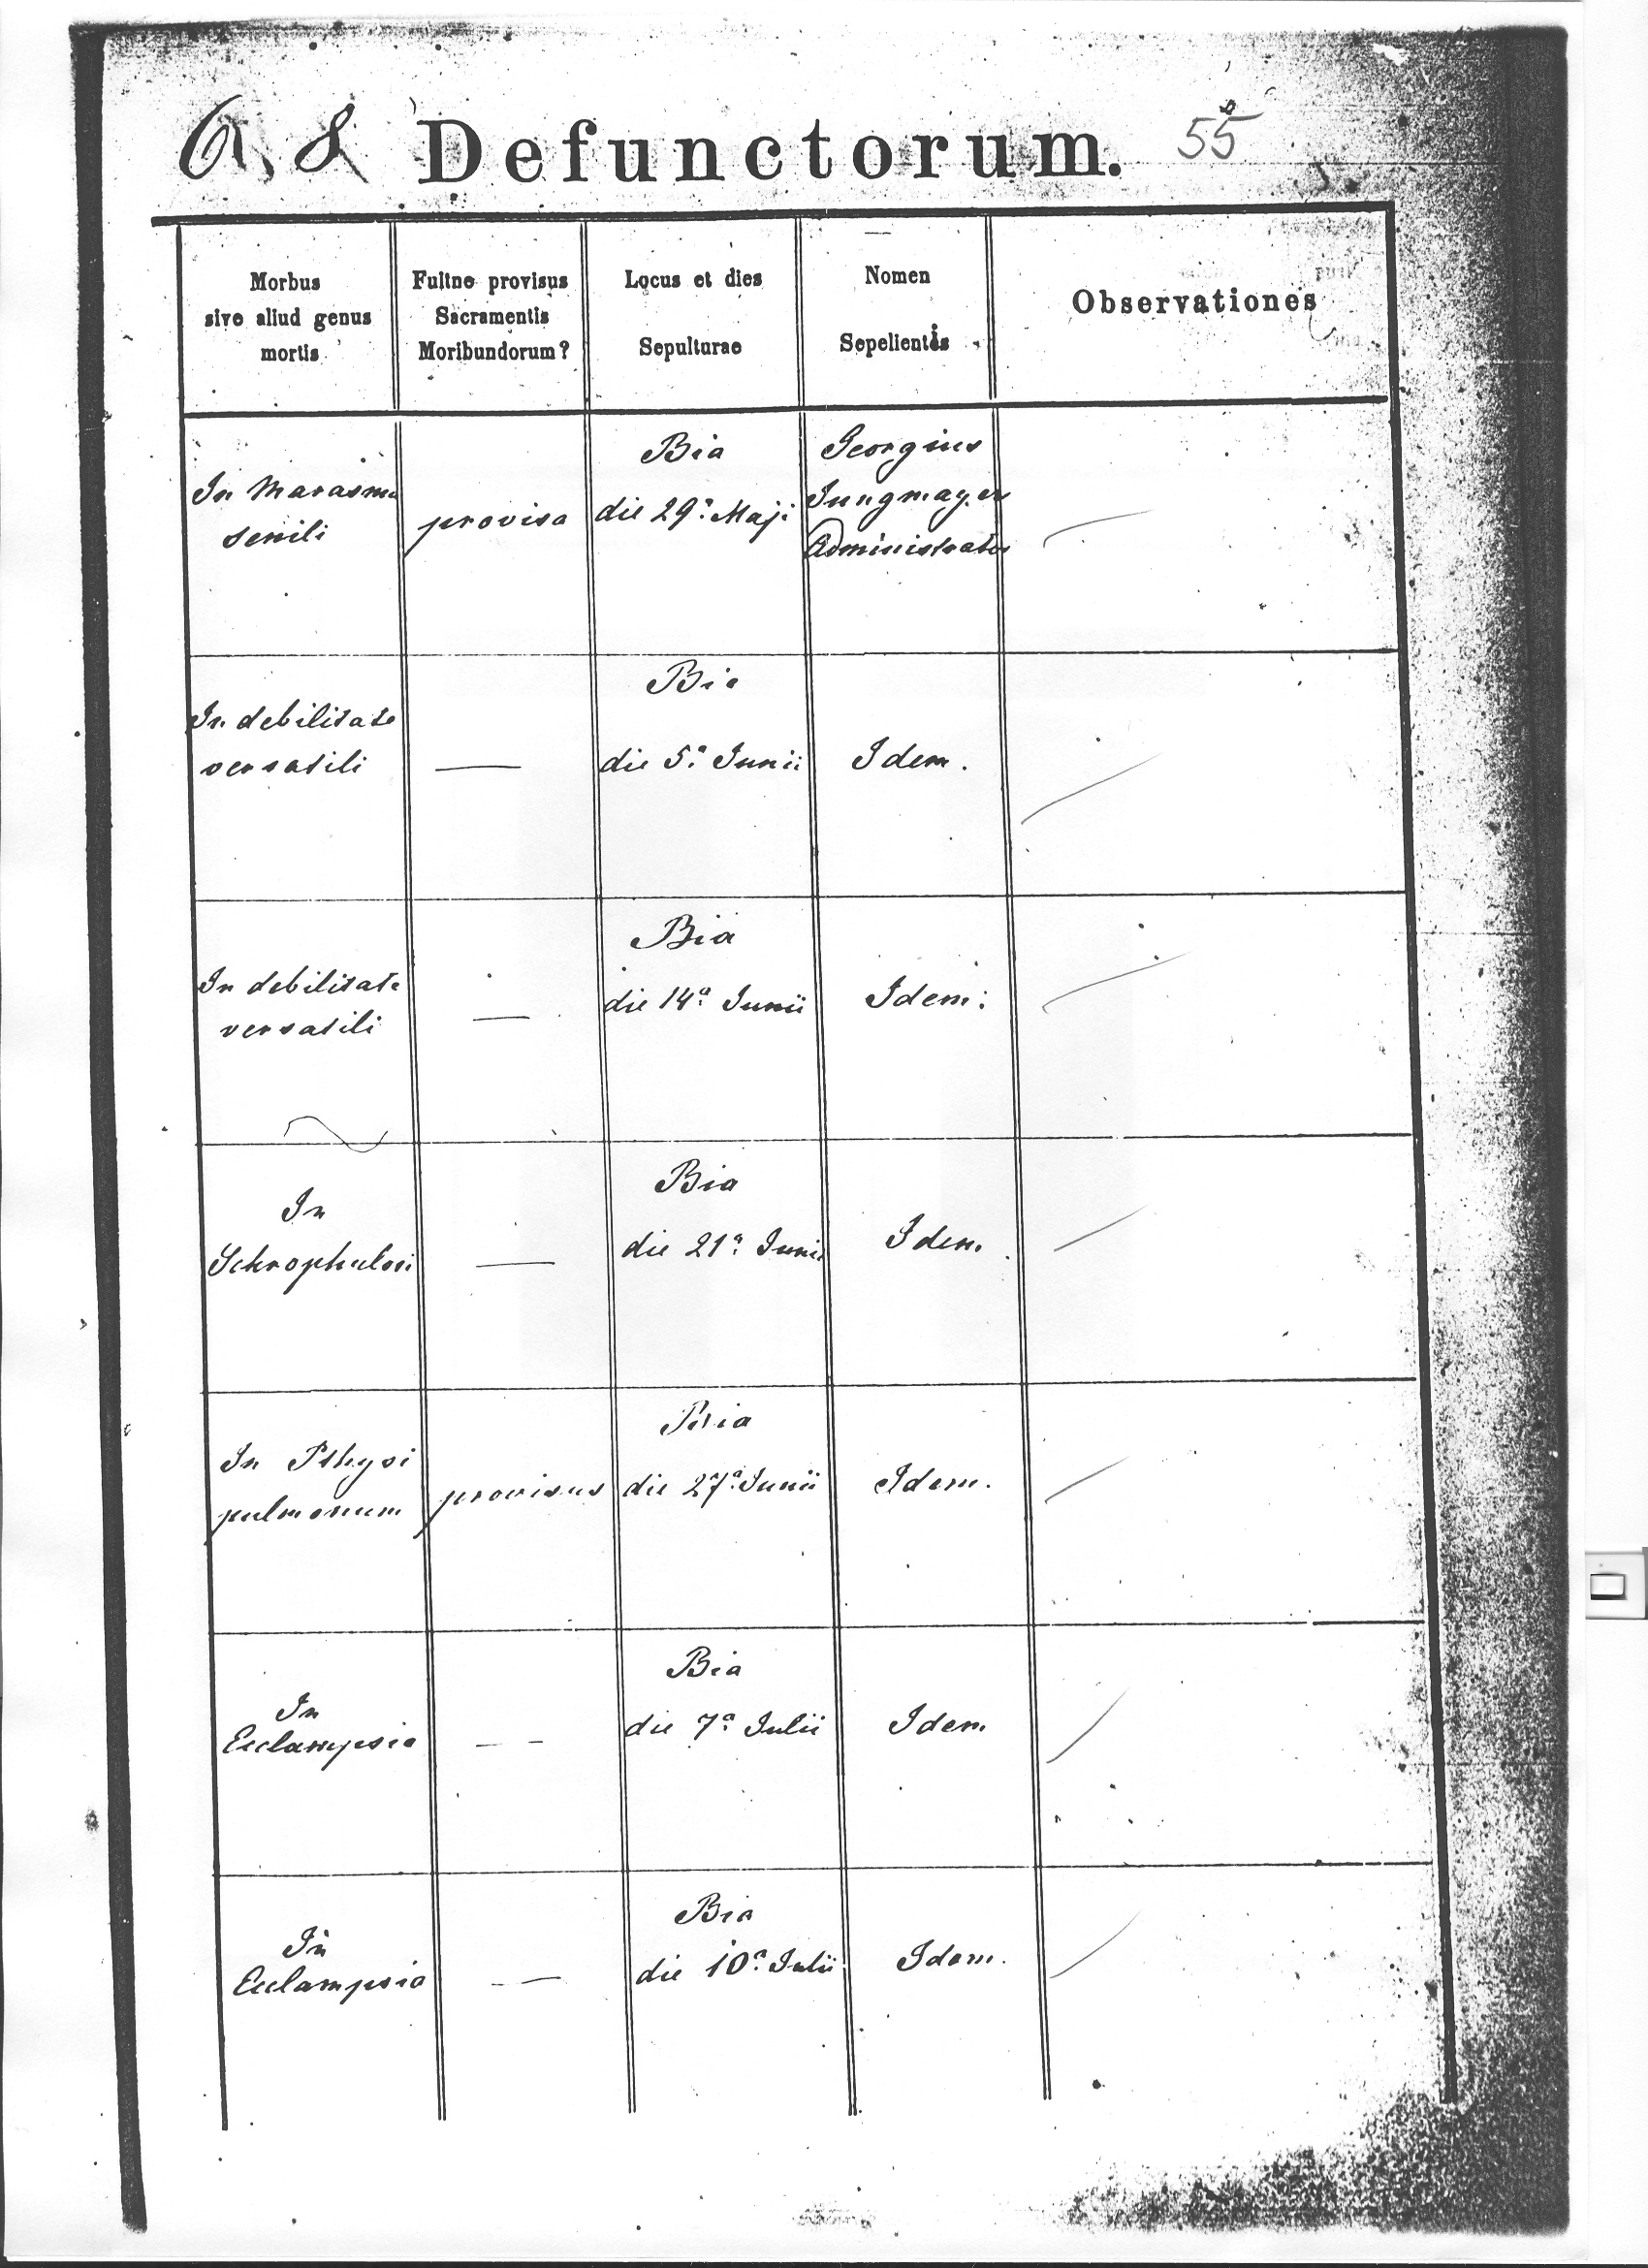 Defunctorum. 55
Morbus
sive aliud genus
mortis
Fuitne provisus
Sacramentis
Moribundorum?
Locus et dies
Sepulturae
Nomen
Sepelientis
Observationes
In Marasmu
senili
provisa
Bia
die 29ª Maji
Georgius
Jungmayer
Administrator
In debilitate
versatili
—
Bia
die 5ª Junii
Idem.
In debilitate
versatili
—
Bia
die 14ª Junii
Idem.
In
Schrophulosi
—
Bia
die 21ª Junii
Idem.
In Pthysi
pulmonum
provisus
Bia
die 27ª Junii
Idem.
In
Ecclampsia
—
Bia
die 7ª Julii
Idem
In
Ecclampsia
—
Bia
die 10ª Julii
Idem.